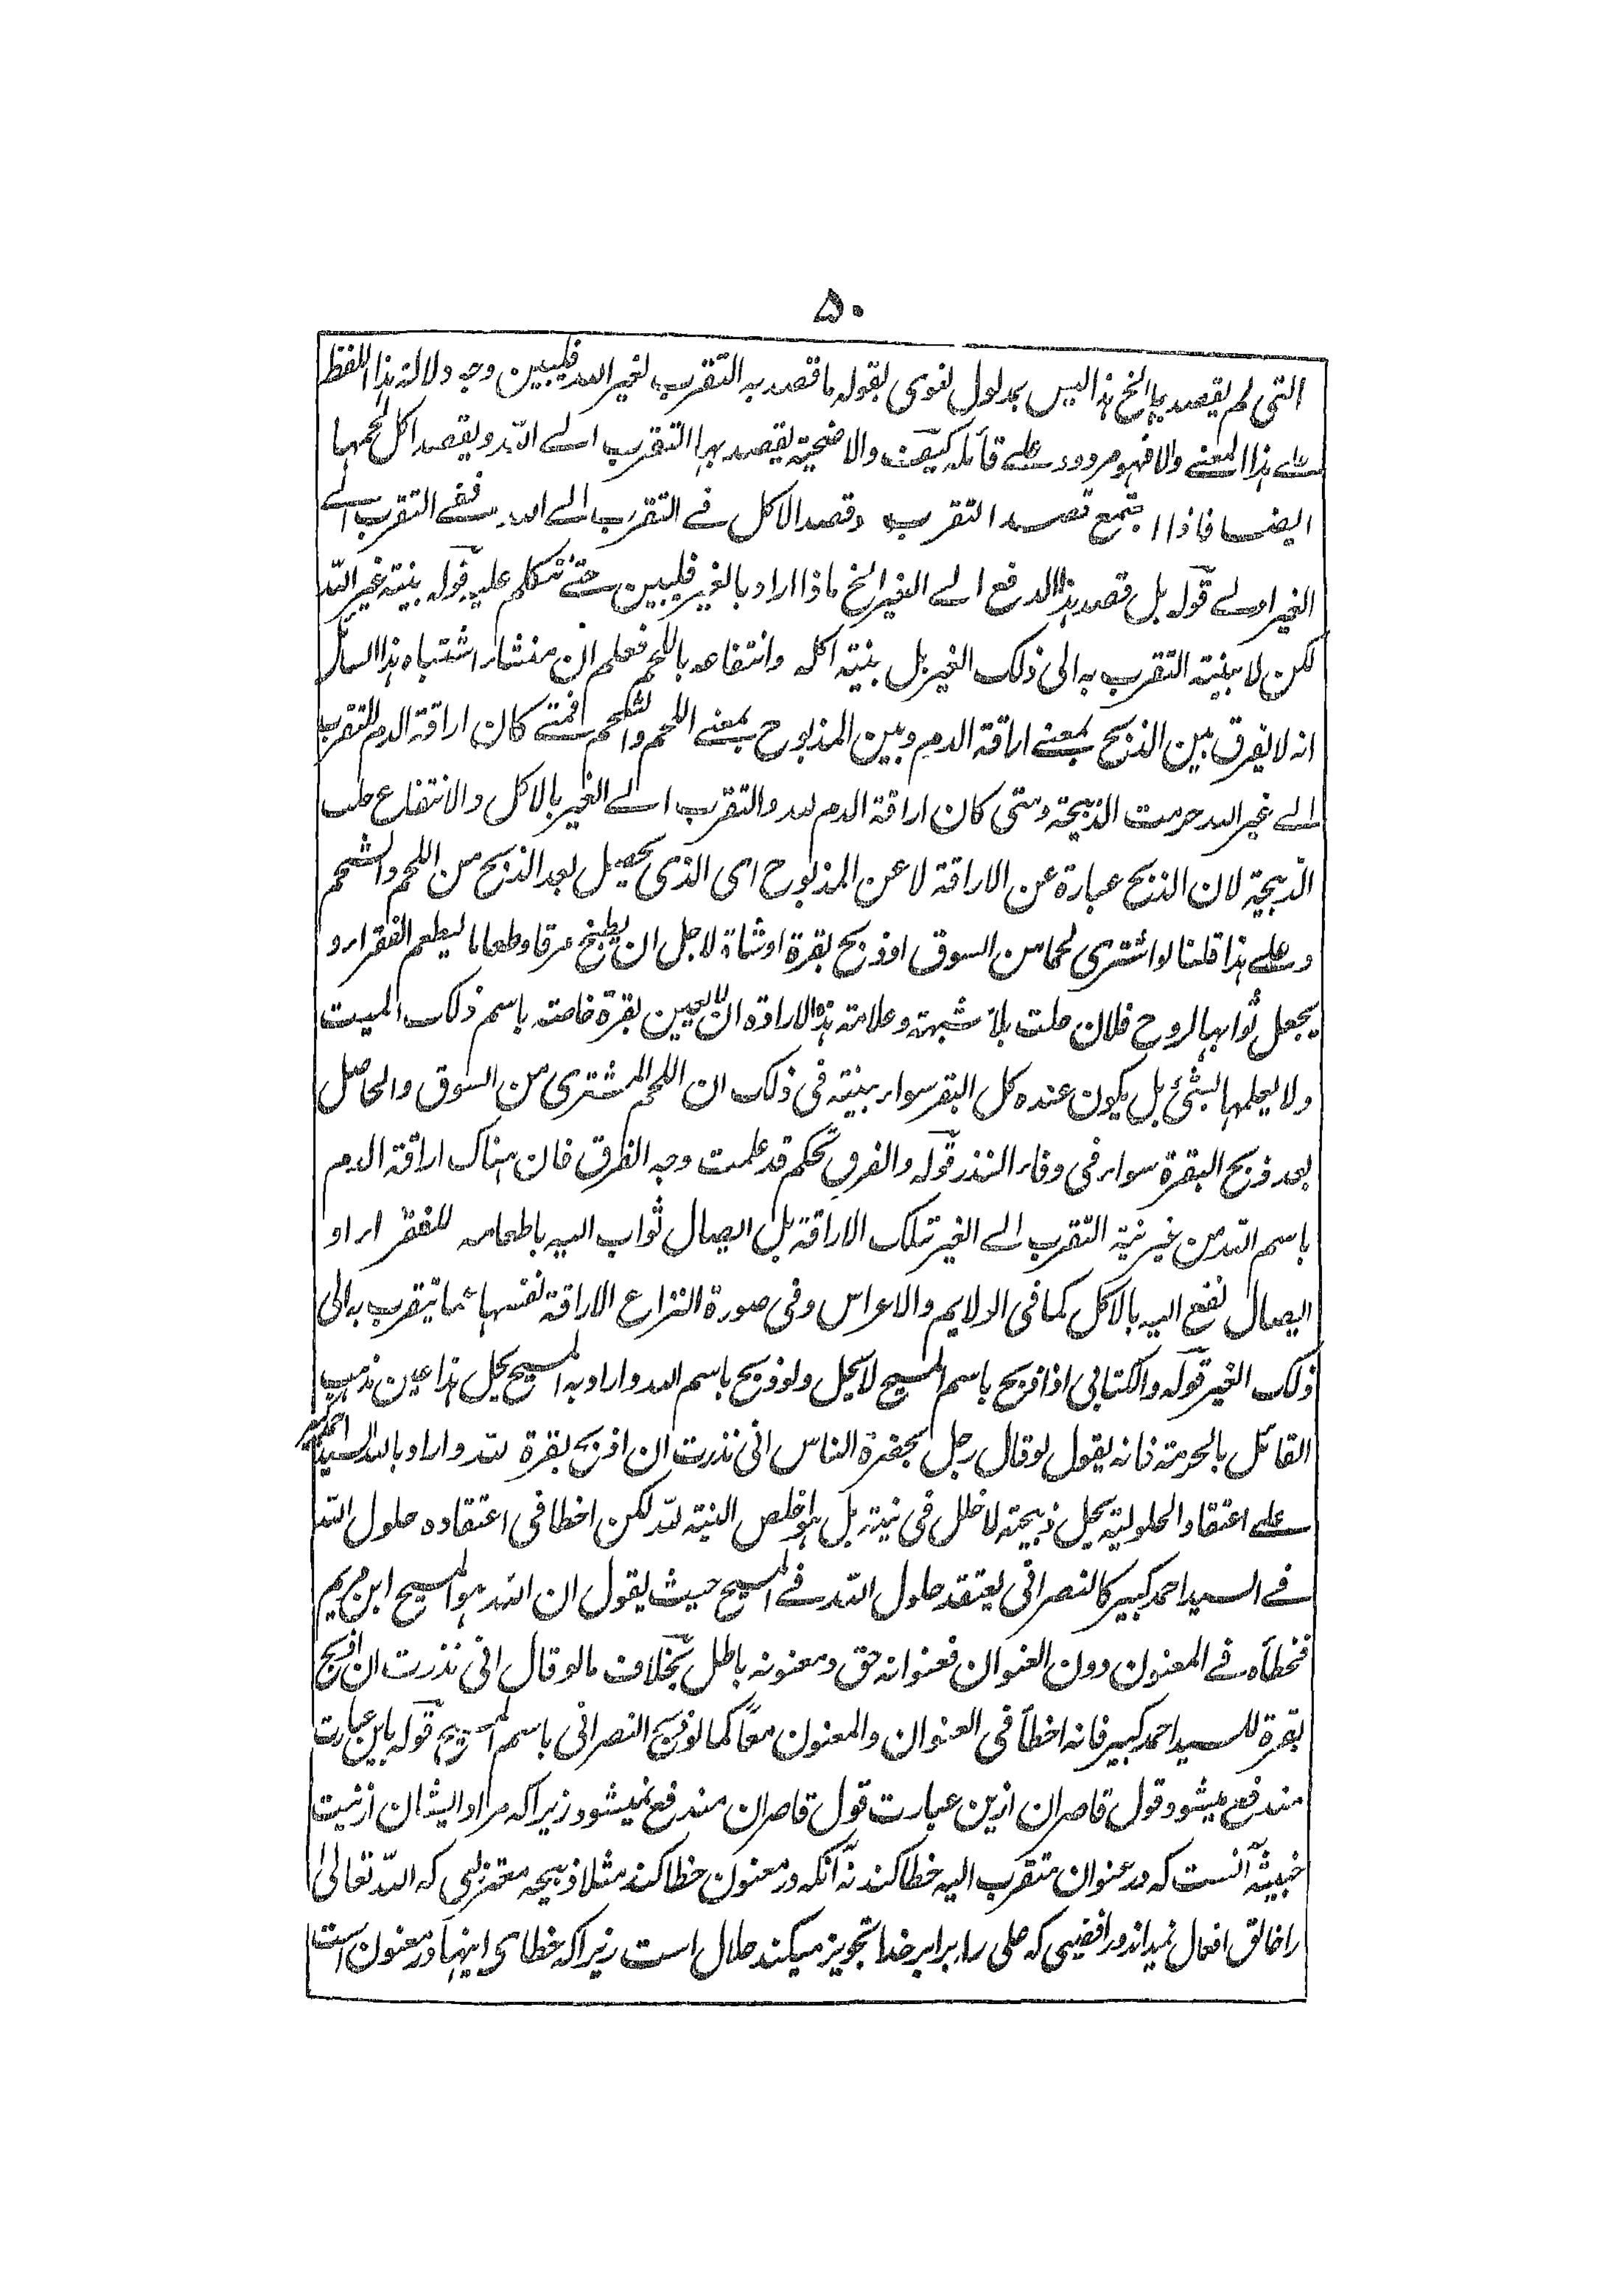 ۵۰
التی لم یقصد بها الخ هذا لیس بمدلول لغوی لقوله ما قصد به التقرب لغیر الله فلیبین وجه دلالة هذا اللفظ
علے هذا المعنے والا فهو مردود علے قائله کیف والاضحیة یقصد بها التقرب الے الله ویقصد اکل لحمها
ایضا فاذا اجتمع قصد التقرب وقصد الاکل فے التقرب الے الله ففے التقرب الے
الغیر اولے قوله بل قصد هذا الدفع الے الغیر الخ ماذا اراد بالغیر فلیبین حتے نتکلم علیه قوله بنیة غیر الله
لکن لا بنیة التقرب به الی ذلک الغیر بل بنیة اکله وانتفاعه باللحم فعلم ان منشاء اشتباه هذا السائل
انه لا یفرق بین الذبح بمعنے اراقة الدم وبین المذبوح بمعنے اللحم والشحم فمتے کان اراقة الدم للتقرب
الے غیر الله حرمت الذبیحة ومتی کان اراقة الدم لله والتقرب الے الغیر بالاکل والانتفاع حلت
الذبیحة لان الذبح عبارة عن الاراقة لا عن المذبوح ای الذی یحصل بعد الذبح من اللحم والشحم
وعلے هذا قلنا لو اشتری لحما من السوق او ذبح بقرة او شاة لاجل ان یطبخ مرقا وطعاما لیطعم الفقراء و
یجعل ثوابها لروح فلان حلت بلا شبهة وعلامة هذه الارادة ان لا یعین بقرة خاصة باسم ذلک المیت
ولا یعلمها بشئ بل یکون عنده کل البقر سواء بنیة فی ذلک ان اللحم المشتری من السوق والحاصل
بعد ذبح البقرة سواء فی وفاء النذر قوله والفرق تحکم قد علمت وجه الفرق فان هناک اراقة الدم
باسم الله من غیر نیة التقرب الے الغیر تلک الاراقة بل ایصال ثواب الیه باطعامه للفقراء او
ایصال نفع الیه بالاکل کما فی الولایم والاعراس وفی صورة النزاع الاراقة نفسها مما یتقرب به الی
ذلک الغیر قوله والکتابی اذا ذبح باسم المسیح لا یحل ولو ذبح باسم الله واراد به المسیح یحل هذا عین مذهب
القائل بالحرمة فانه یقول لو قال رجل بحضرة الناس انی نذرت ان اذبح بقرة لله واراد بالله السید احمد کبیر
علے اعتقاد الحلولیة یحل ذبیحته لا خلل فی نیته بل هو اخلص النیة لله لکن اخطا فی اعتقاده حلول الله
فے السید احمد کبیر کالنصرانی یعتقد حلول الله فے المسیح حیث یقول ان الله هو المسیح ابن مریم
فخطأه فے المعنون دون العنوان فعنوانه حق ومعنونه باطل بخلاف ما لو قال انی نذرت ان اذبح
بقرة للسید احمد کبیر فانه اخطأ فی العنوان والمعنون معاً کما لو ذبح النصرانی باسم المسیح قوله باین عبارت
مندفع میشود قول قاصران ازین عبارت قول قاصران مندفع نمیشود زیراکه مراد ایشان از نیت
خبیثه آنست که در عنوان متقرب الیه خطا کند نه آنکه در معنون خطا کند مثلا ذبیحه معتزلی که الله تعالیٰ
را خالق افعال نمیداند و رافضیی که علی را برابر خدا تجویز میکند حلال است زیراکه خطای اینها در معنون است